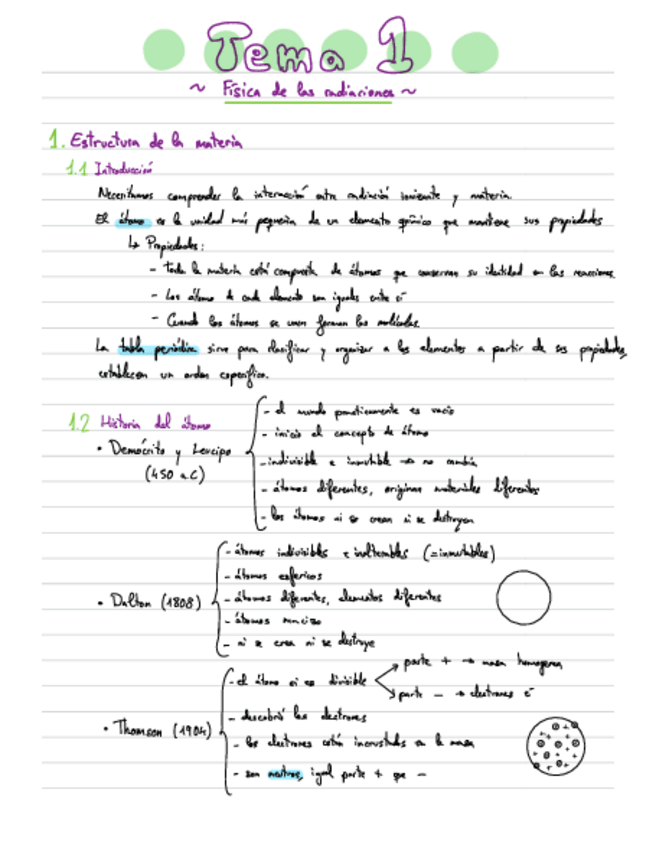 Tema 1
~ Física de las radiaciones ~
1. Estructura de la materia
1.1 Introducción
Necesitamos comprender la interacción entre radiación ionizante y materia.
El átomo es la unidad más pequeña de un elemento químico que mantiene sus propiedades
↳ Propiedades:
- Toda la materia está compuesta de átomos que conservan su identidad en las reacciones
- Los átomo de cada elemento son iguales entre sí
- Cuando los átomos se unen forman las moléculas
La tabla periódica sirve para clasificar y organizar a los elementos a partir de sus propiedades,
establecen un orden específico.
1.2 Historia del átomo
• Demócrito y Leucipo
(450 a.C)
- el mundo practicamente es vacío
- inició el concepto de átomo
- indivisible e inmutable → no cambia
- átomos diferentes, originan materiales diferentes
- los átomos ni se crean ni se destruyen
• Dalton (1808)
- átomos indivisibles e inalterables (=inmutables)
- átomos esfericos
- átomos diferentes, elementos diferentes
- átomos macizo
- ni se crea ni se destruye
• Thomson (1904)
- el átomo si es divisible
parte + → masa homogenea
parte - → electrones e⁻
- descubrió los electrones
- los electrones están incrustados en la masa
- son neutros, igual parte + que -